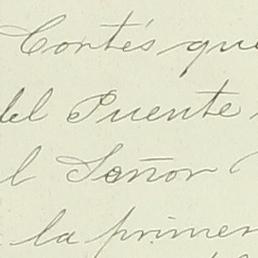 Cortés que
del Puente
el Señor
la primer